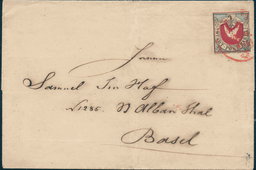 Herrn
Samuel Im Hof
N 1285. St Alban Thal
Basel